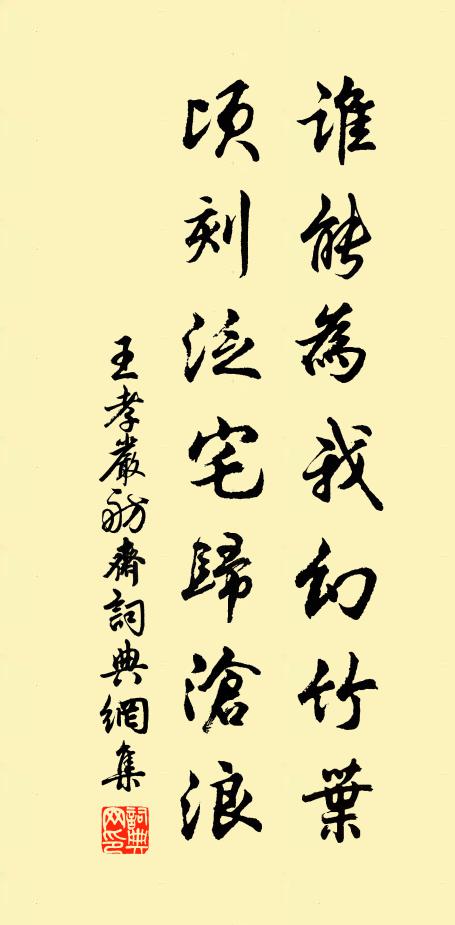 誰能為我幻竹葉
頃刻泛宅歸滄浪
王孝嚴舫齋詞典網集
詞典網印